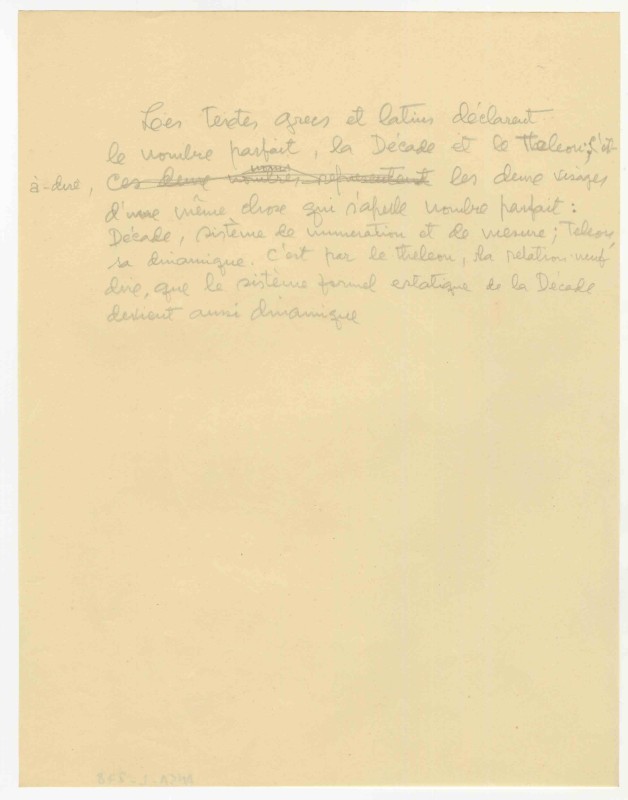 Les textes grecs et latins déclarent
le nombre parfait, la Décade et le Theleon; c'est-
à-dire, ces deux nombres représentent les deux visages
d'une même chose qui s'apelle nombre parfait:
Décade, sistème de numeration et de mesure; Teleon,
sa dinamique. C'est par le theleon, la relation neuf
dire, que le sistème formel estatique de la Décade
devient aussi dinamique